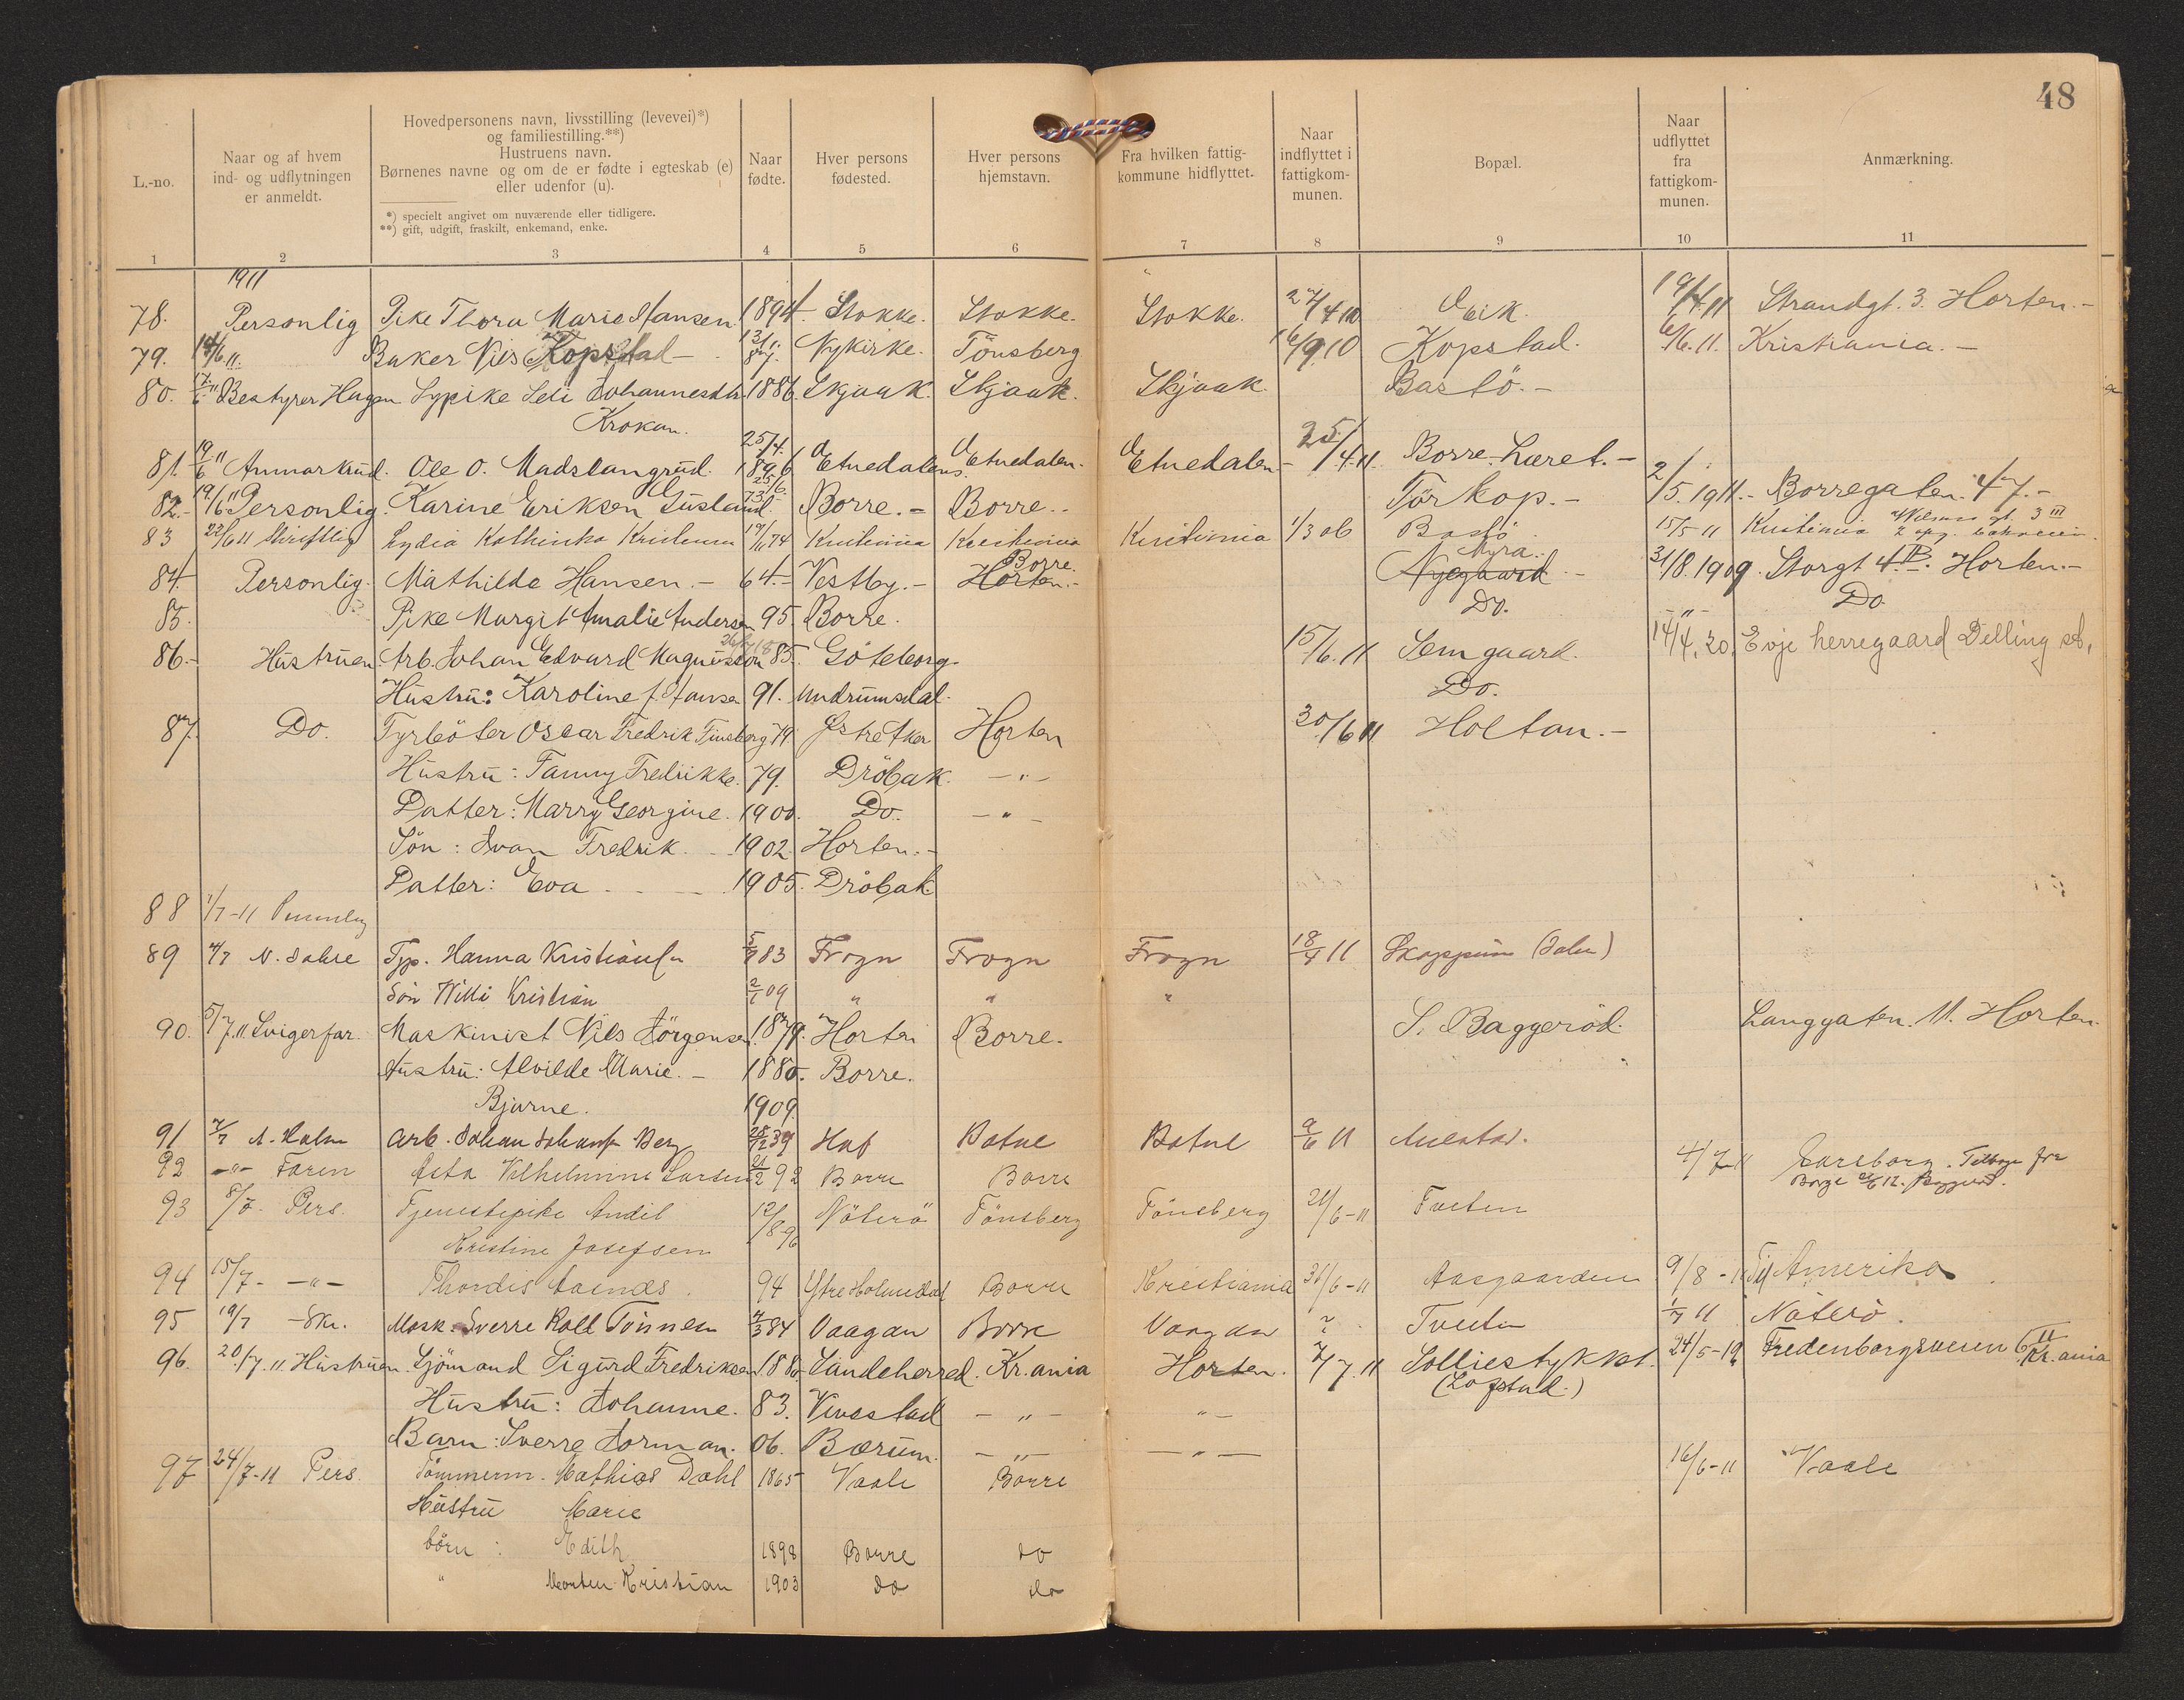 48
L.-no.
Naar og af hvem
ind- og udflytningen
er anmeldt.
Hovedpersonens navn, livsstilling (levevei)*)
og familiestilling.**)
Hustruens navn.
Børnenes navne og om de er fødte i egteskab (e)
eller udenfor (u).
*) specielt angivet om nuværende eller tidligere.
**) gift, udgift, fraskilt, enkemand, enke.
Naar
fødte.
Hver persons
fødested.
Hver persons
hjemstavn.
Fra hvilken fattig-
kommune hidflyttet.
Naar
indflyttet i
fattigkom-
munen.
Bopæl.
Naar
udflyttet
fra
fattigkom-
munen.
Anmærkning.
1 2 3 4 5 6 7 8 9 10 11
1911
78. Personlig Pike Thora Marie Hansen. 1894. Stokke. Stokke. Stokke. 27/4 10 Eik. 19/4 11 Strandgt. 3. Horten.-
79. 14/6 11. Baker Nils Kopstad - 87. Nykirke. Tönsberg 16/9 10 Kopstad. 6/6. 11. Kristiania.-
80. 17/6 " Bestyrer Hagen 1886. Skjaak. Skjaak. Skjaak. Bastö.-
Krokan.
81. 19/6 11 Ole O. Madslangrud. 25/4. 1896 Etnedalens. Etnedalen. Etnedalen- 25/4. 11. Borre-Læret.-
82.- 19/6 " Personlig. Karine Eriksen 25/6. 73. Borre.- Borre.- Törkop.- 2/5. 1911.- Borregaten. 47.-
83 22/6 11 Skriftlig Lydia Kathinka 19/11 74 Kristiania Kristiania Kristiania 1/3 06 Bastö 15/5 11 Kristiania gt. 3 III
84. Personlig. Mathilde Hansen.- 64.- Vestby.- Horten.- Borre. Nygaard - Myra.- 31/8. 1909. Storgt 4 B. Horten.-
85. Pike Margit Amalie Andersen 95. Borre. Do. -"- Do
86.- Hustruen. Arb. Johan Edvard Magnusson 85. Göteborg. 15/6. 11 Semgaard. 14/4. 20. Evje herregaard Dilling st.
Hustru: Karoline f. Hansen 91. Undrumsdal. Do.
87. Do. Fyrböter Oscar Fredrik 79. Østre Aker Horten 30/6 11 Holtan.-
Hustru: Fanny Fredrikke. 79. Dröbak. -"-
Datter: Marry Georgine. 1900. Do. -"-
Sön: Ivan Fredrik. - 1902. Horten.-
Datter: Eva - - 1905. Dröbak
88 1/7-11
89 4/7 Tjp. Hanna Kristiansen 83 Frogn Frogn Frogn 18/4 11 Skoppum
Sön Willi Kristian 2/1 09 " " "
90. 5/7. 11 Svigerfar. Maskinist Nils Jörgensen. 1879. Horten Borre. S. Baggeröd. Langgaten. 11. Horten.
Hustru: Alvilde Marie.- 1880. Borre.
Bjarne. 1909.
91 7/7 A. Holm Arb. Johan Johansen Berg 28/12 39 Botne Botne 9/6 11
92 -"- Faren Asta Vilhelmine Larsen 21/2 92 Borre Borre 4/7-11
93 8/7. Pers. Tjenestepike Andil 12/8 96 Nöterö Tönsberg Tönsberg 24/6-11 Tveten
Kristine Josefsen
94 15/7- -"- Thordis 94 Ytre Holmedal Borre Kristiania 31/6-11 Aasgaarden 9/8-11 Til Amerika
95 19/7 -Skr. Mask. Sverre Roll Tönnesen 7/3 84 Vaagan Borre Vaagan ? Tveten 1/7 11 Nöterö.
96. 20/7. 11. Hustruen. Sjömand Sigurd Fredriksen 1880. Sandeherred. Kr.ania Horten. 7/7. 11 Solliestykket. 24/5-19 Fredenborgveien 6 II
(Lofstad.) Kr.ania
Hustru: Johanne. 83. Vivestad -"- "-
Barn: Sverre Norman. 06. Bærum. -"- -"-
97 24/7-11 Pers. Tömmerm. Mathias Dahl 1865 Vaale Borre 16/6-11 Vaale
Hustru Marie
börn: Edith 1898 Borre do
" Morten Kristian 1903 do do